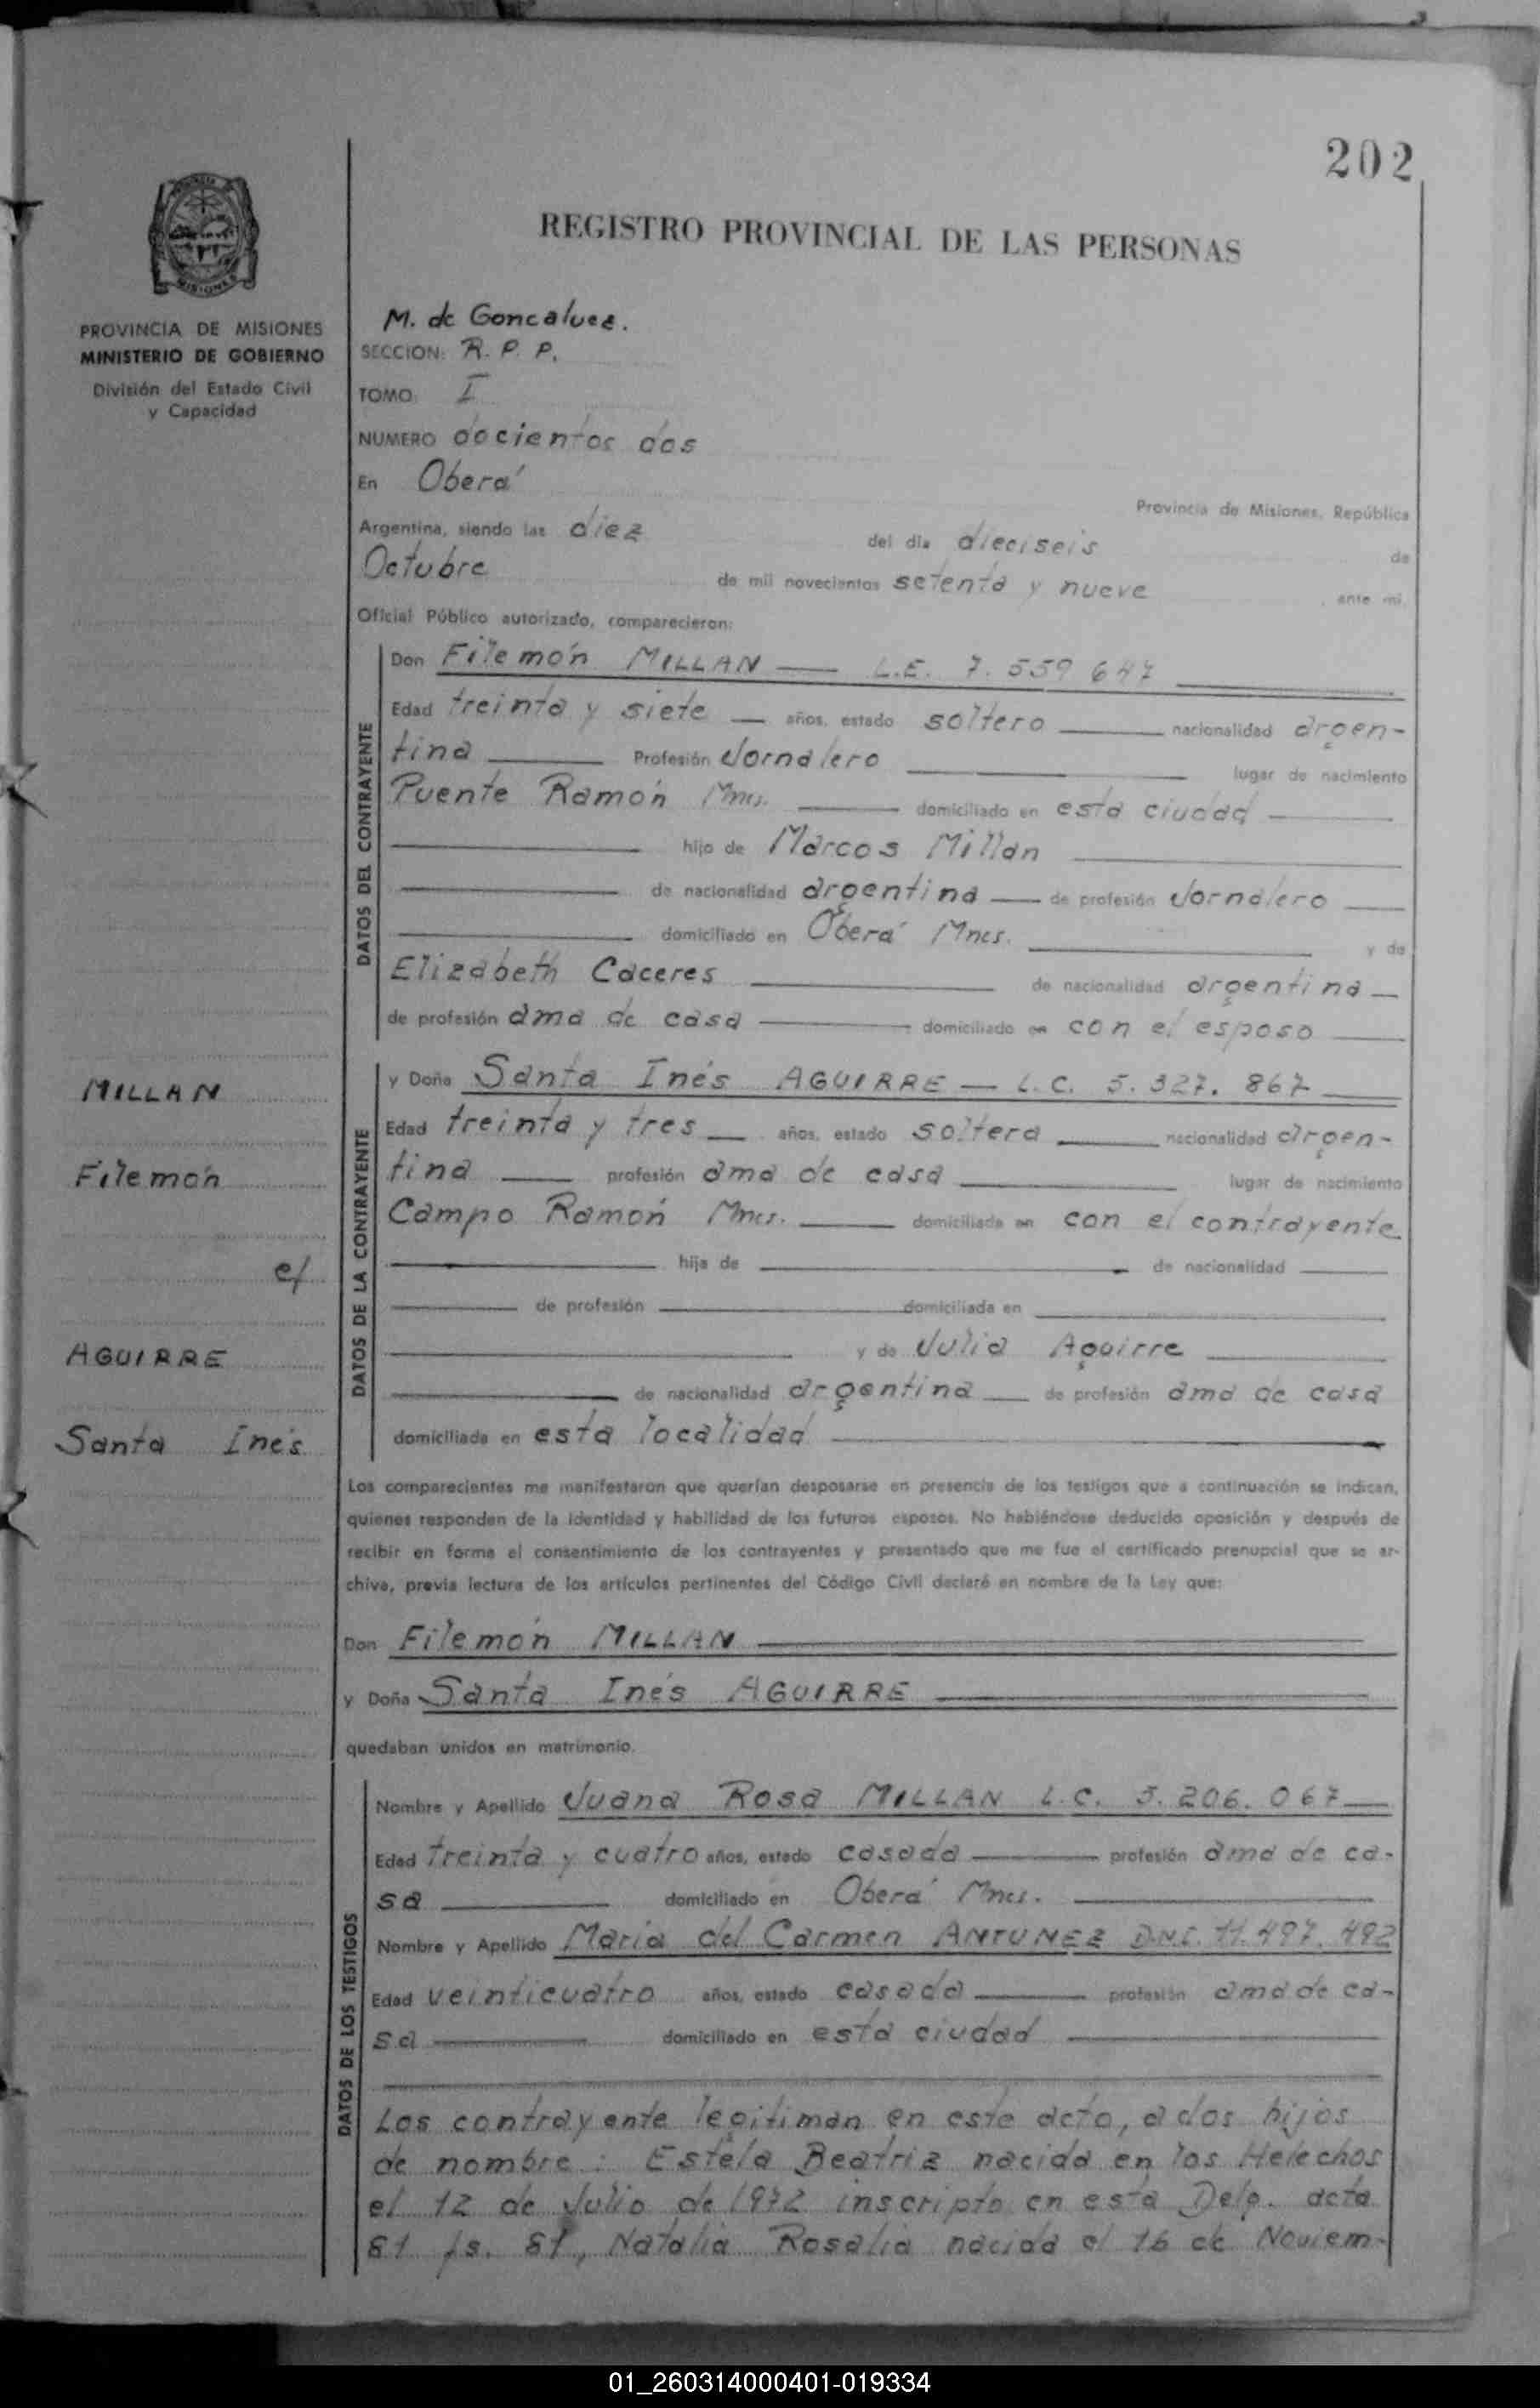 202
REGISTRO PROVINCIAL DE LAS PERSONAS
PROVINCIA DE MISIONES
MINISTERIO DE GOBIERNO
División del Estado Civil
y Capacidad
MILLAN
Filemón
c/
AGUIRRE
Santa Inés
M. de Goncalves.
SECCION: R. P. P.
TOMO: I
NUMERO docientos dos
En Oberá
Provincia de Misiones, República
Argentina, siendo las diez del día dieciseis de
Octubre de mil novecientos setenta y nueve, ante mí,
Oficial Público autorizado, comparecieron:
DATOS DEL CONTRAYENTE
Don Filemón MILLAN — L.E. 7.559 647
Edad treinta y siete — años, estado soltero — nacionalidad argen-
tina — Profesión Jornalero — lugar de nacimiento
Puente Ramón Mnes. — domiciliado en esta ciudad —
hijo de Marcos Millan
de nacionalidad argentina — de profesión Jornalero —
domiciliado en Oberá Mnes. — y de
Elizabeth Caceres — de nacionalidad argentina —
de profesión ama de casa — domiciliado en con el esposo —
DATOS DE LA CONTRAYENTE
y Doña Santa Inés AGUIRRE — L.C. 5.327.867
Edad treinta y tres — años, estado soltera — nacionalidad argen-
tina — profesión ama de casa — lugar de nacimiento
Campo Ramón Mnes. — domiciliada en con el contrayente
— hija de — de nacionalidad —
— de profesión — domiciliada en —
— y de Julia Aguirre —
— de nacionalidad argentina — de profesión ama de casa
domiciliada en esta localidad —
Los comparecientes me manifestaron que querían desposarse en presencia de los testigos que a continuación se indican,
quienes responden de la identidad y habilidad de los futuros esposos. No habiéndose deducido oposición y después de
recibir en forma el consentimiento de los contrayentes y presentado que me fue el certificado prenupcial que se ar-
chiva, previa lectura de los artículos pertinentes del Código Civil declaré en nombre de la Ley que:
Don Filemón MILLAN
y Doña Santa Inés AGUIRRE
quedaban unidos en matrimonio.
DATOS DE LOS TESTIGOS
Nombre y Apellido Juana Rosa MILLAN L.C. 5.206.067 —
Edad treinta y cuatro años, estado casada — profesión ama de ca-
sa — domiciliado en Oberá Mnes. —
Nombre y Apellido Maria del Carmen ANTUNEZ D.N.I. 11.497.492
Edad veinticuatro años, estado casada — profesión ama de ca-
sa — domiciliado en esta ciudad —
Los contrayente legitiman en este acto, a dos hijos
de nombre: Estela Beatriz nacida en los Helechos
el 12 de Julio de 1972 inscripta en esta Delg. acta
81 fs. 81, Natalia Rosalia nacida el 16 de Noviem-
01_260314000401-019334